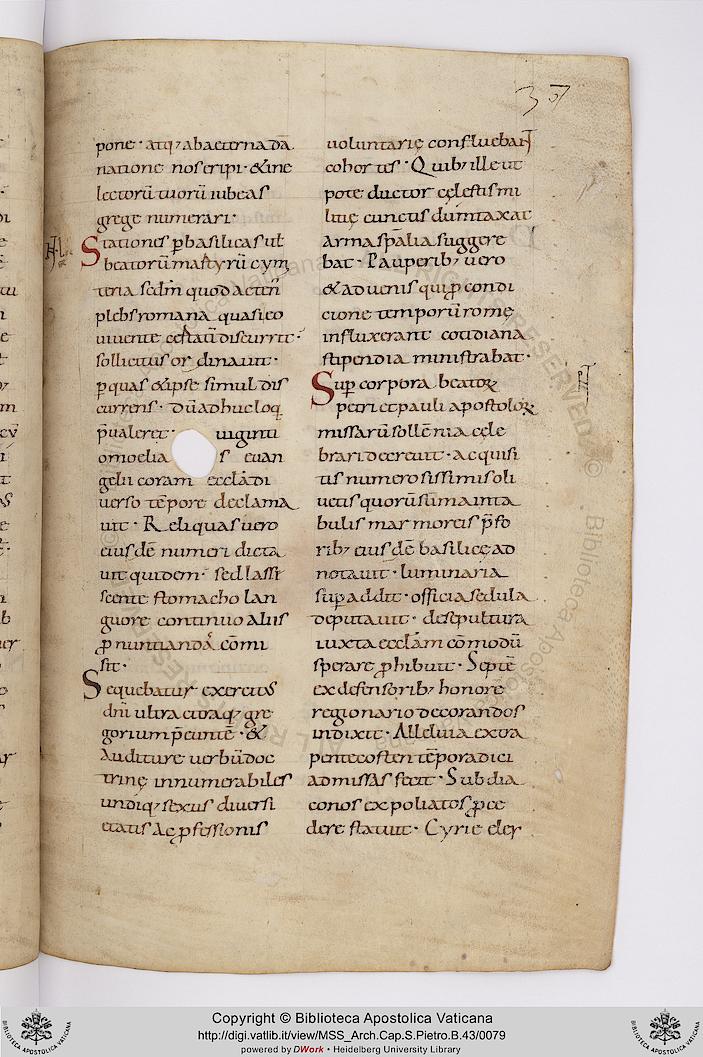 37
pone · atq; abaeterna dā
natione nos eripi · & in e
lectorū tuorū iubeas
grege numerari ·
Stationes p basilicas ut
beatorū martyrū cym
teria sedm̄ quod acten̄
plebs romana quasi eo
uivente certatī discurrit ·
sollicitus ordinauit ·
p quas & ipse simul dis
currens · dū adhuc loq
p̄ualeret · uiginti
omoelias euan
gelii coram eccła di
uerso tēpore declama
uit · Reliquas uero
eiusdē numeri dicta
uit quidem · sed lasse
scente stomacho lan
guore continuo aliis
p nuntiandā cōmi
sit ·
Sequebatur exercitus
dn̄i ultra citraq; gre
gorium p̄euntē · &
audituri uerbū doc
trinę innumerabiles
undiq; sexus diuersi
etatis ac p̄fessionis
uoluntarię confluebant
cohortes · Quib; ille ut
pote ductor cęlestis mi
litię cunctis dumtaxat
arma spalia suggere
bat · Pauperib; uero
& aduenis qui p condi
cione temporū romę
influxerant cotidiana
stipendia ministrabat ·
Sup corpora beator
petri et pauli apostolor
missarū sollēnia cele
brari decreuit · acquisi
tis numerosissimis oli
uetis quorū sūma in ta
bulis marmoreis p̄ fo
rib; eiusdē basilicę ad
notauit · luminaria
supaddit · officia sedula
deputauit · de sepultura
iuxta eccłam cōmodū
sperare phibuit · Septē
ex defensorib; honore
regionario decorandos
indixit · Alleluia extra
pentecosten tēpora dici
ad missas fecit · Subdia
conos expoliatos proce
dere statuit · Cyrie eley
Copyright © Biblioteca Apostolica Vaticana
http://digi.vatlib.it/view/MSS_Arch.Cap.S.Pietro.B.43/0079
powered by DWork · Heidelberg University Library